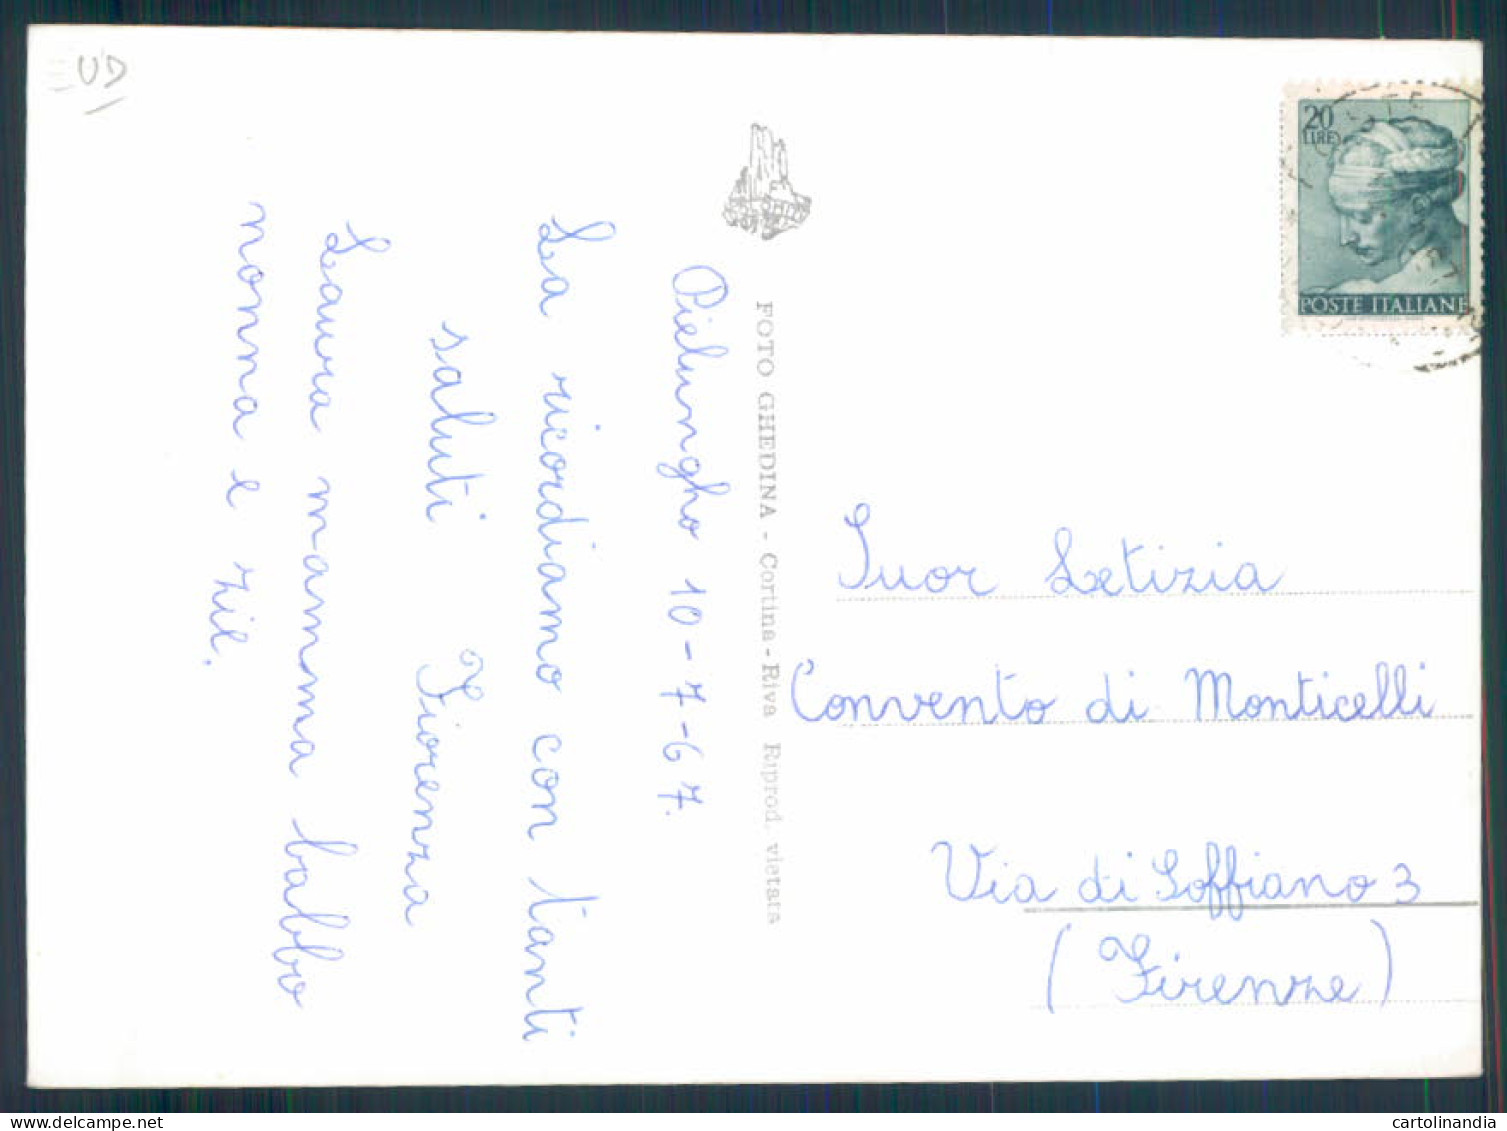 UD
Pielungho 10-7-67.
La ricordiamo con tanti
saluti Fiorenza
Laura mamma babbo
nonna e zii.
FOTO GHEDINA - Cortina - Riva Riprod. vietata
20
LIRE
POSTE ITALIANE
Suor Letizia
Convento di Monticelli
Via di Soffiano 3
(Firenze)
cartolinandia